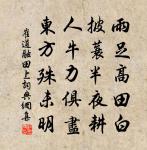 雨足高田白
披蓑半夜耕
人牛力俱盡
東方殊未明
崔道融田上詞典網集